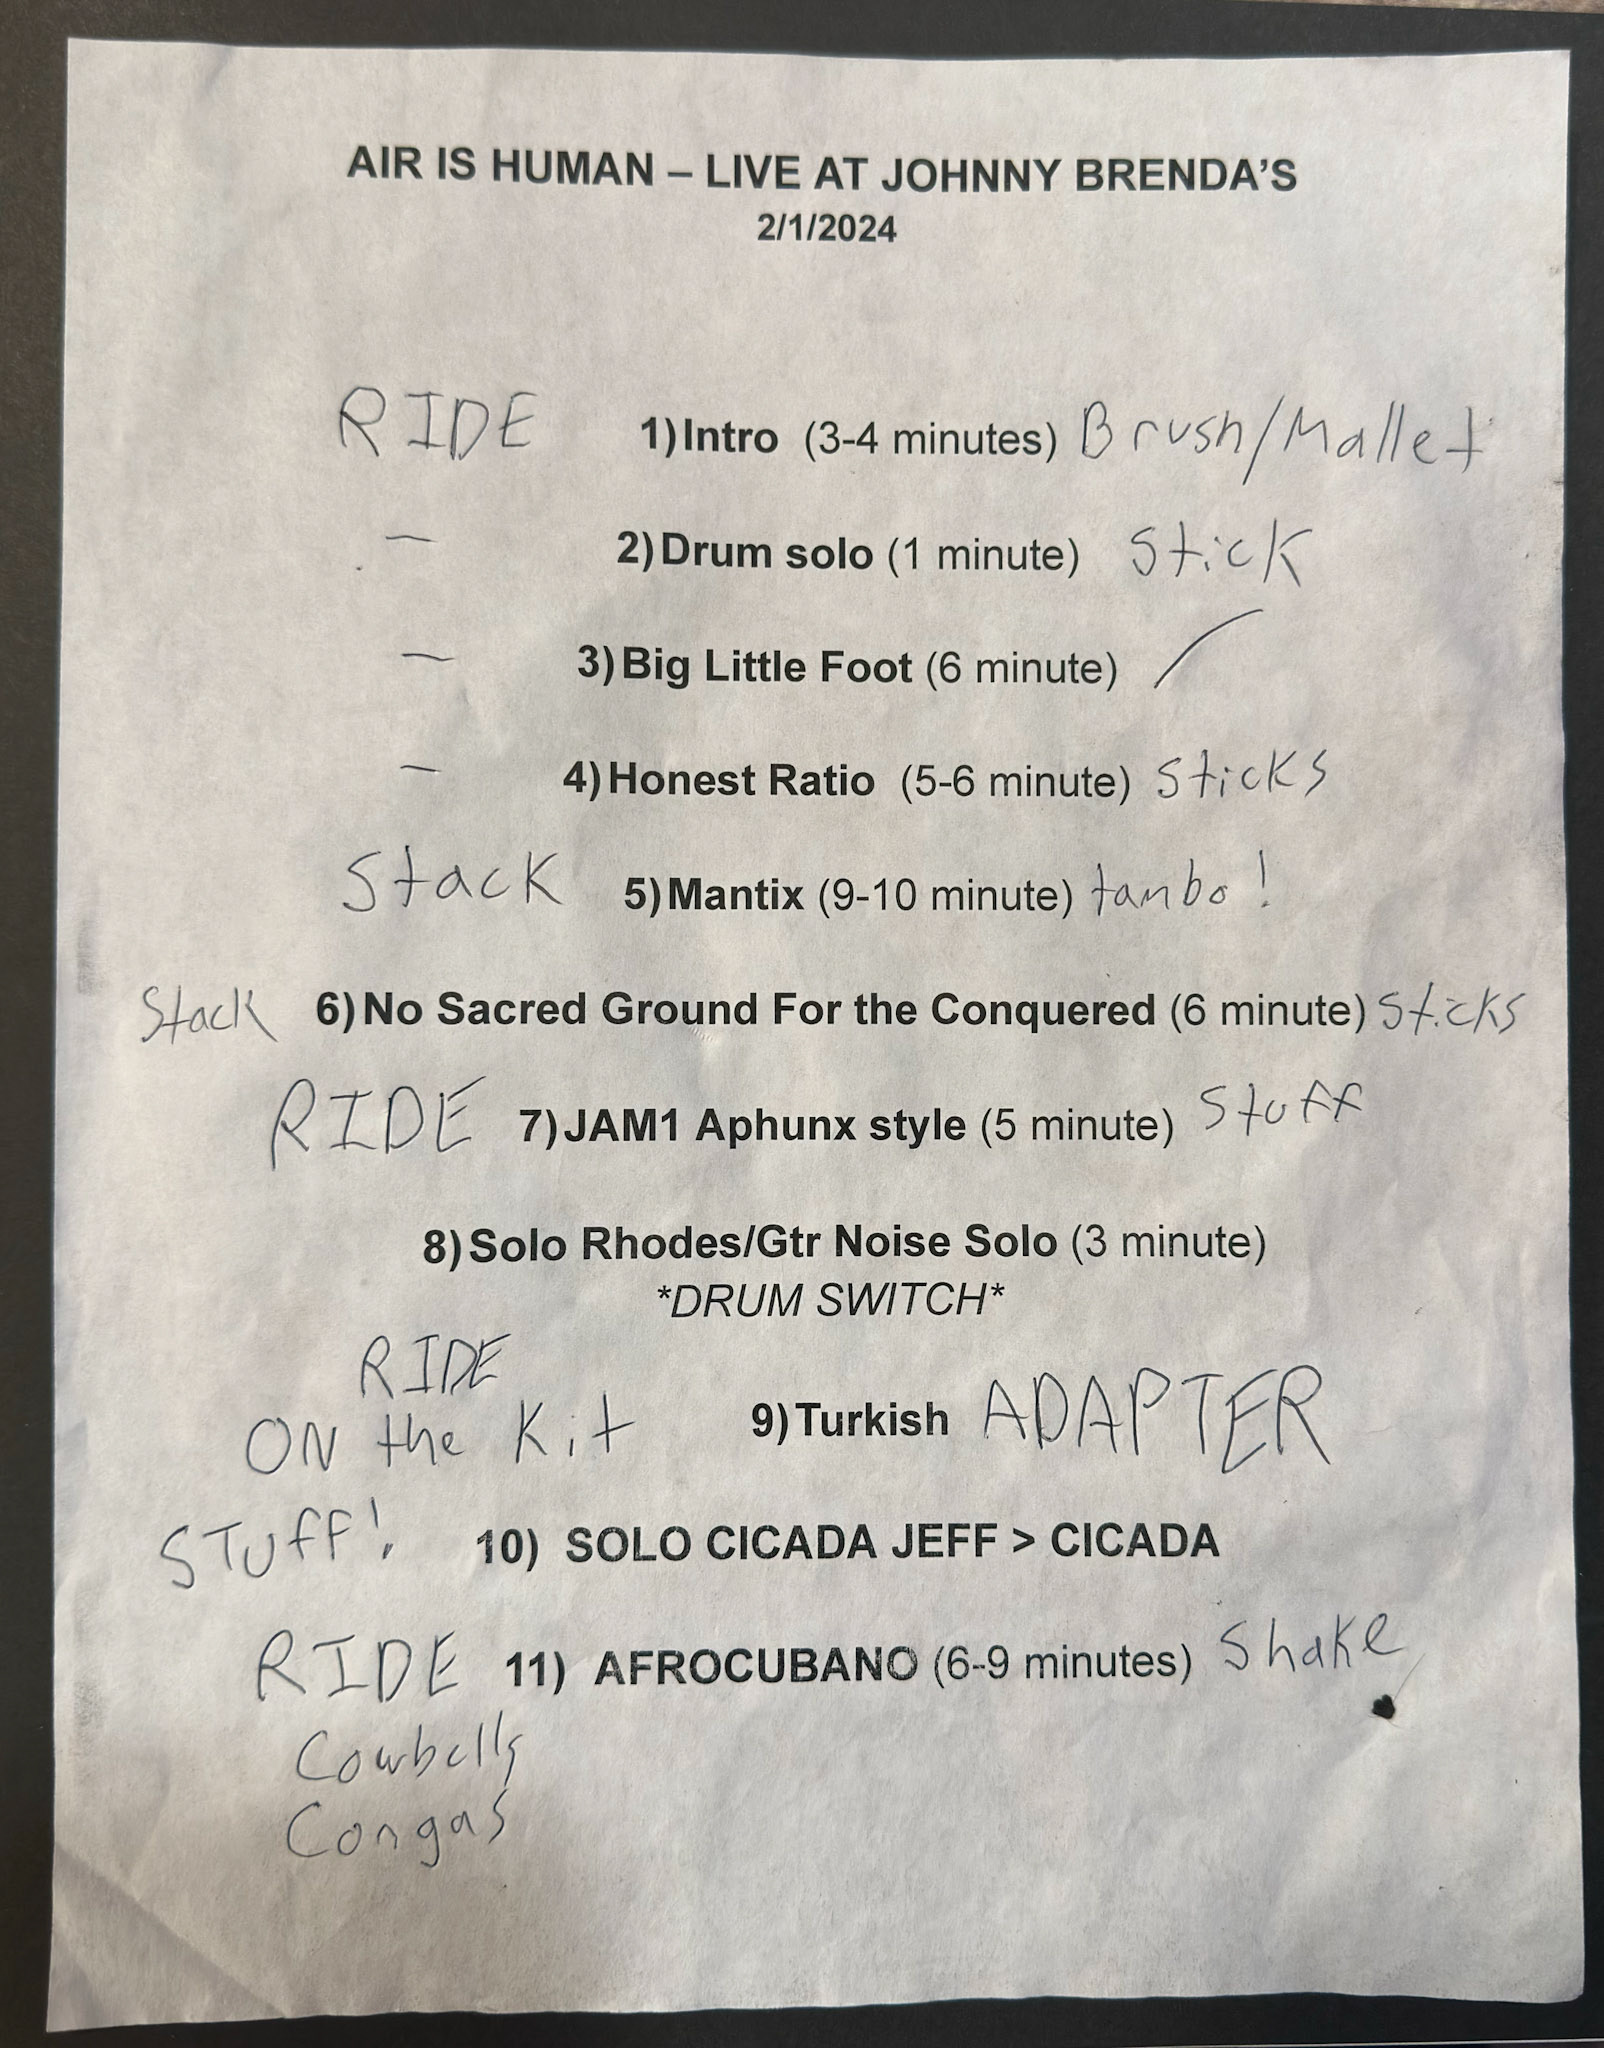 AIR IS HUMAN – LIVE AT JOHNNY BRENDA'S
2/1/2024
RIDE 1) Intro (3-4 minutes) Brush/Mallet
– 2) Drum solo (1 minute) Stick
– 3) Big Little Foot (6 minute) /
– 4) Honest Ratio (5-6 minute) Sticks
Stack 5) Mantix (9-10 minute) tambo!
Stack 6) No Sacred Ground For the Conquered (6 minute) Sticks
RIDE 7) JAM1 Aphunx style (5 minute) Stuff
8) Solo Rhodes/Gtr Noise Solo (3 minute)
*DRUM SWITCH*
RIDE
ON the Kit 9) Turkish ADAPTER
STUff! 10) SOLO CICADA JEFF > CICADA
RIDE 11) AFROCUBANO (6-9 minutes) Shake
Cowbells
Congas